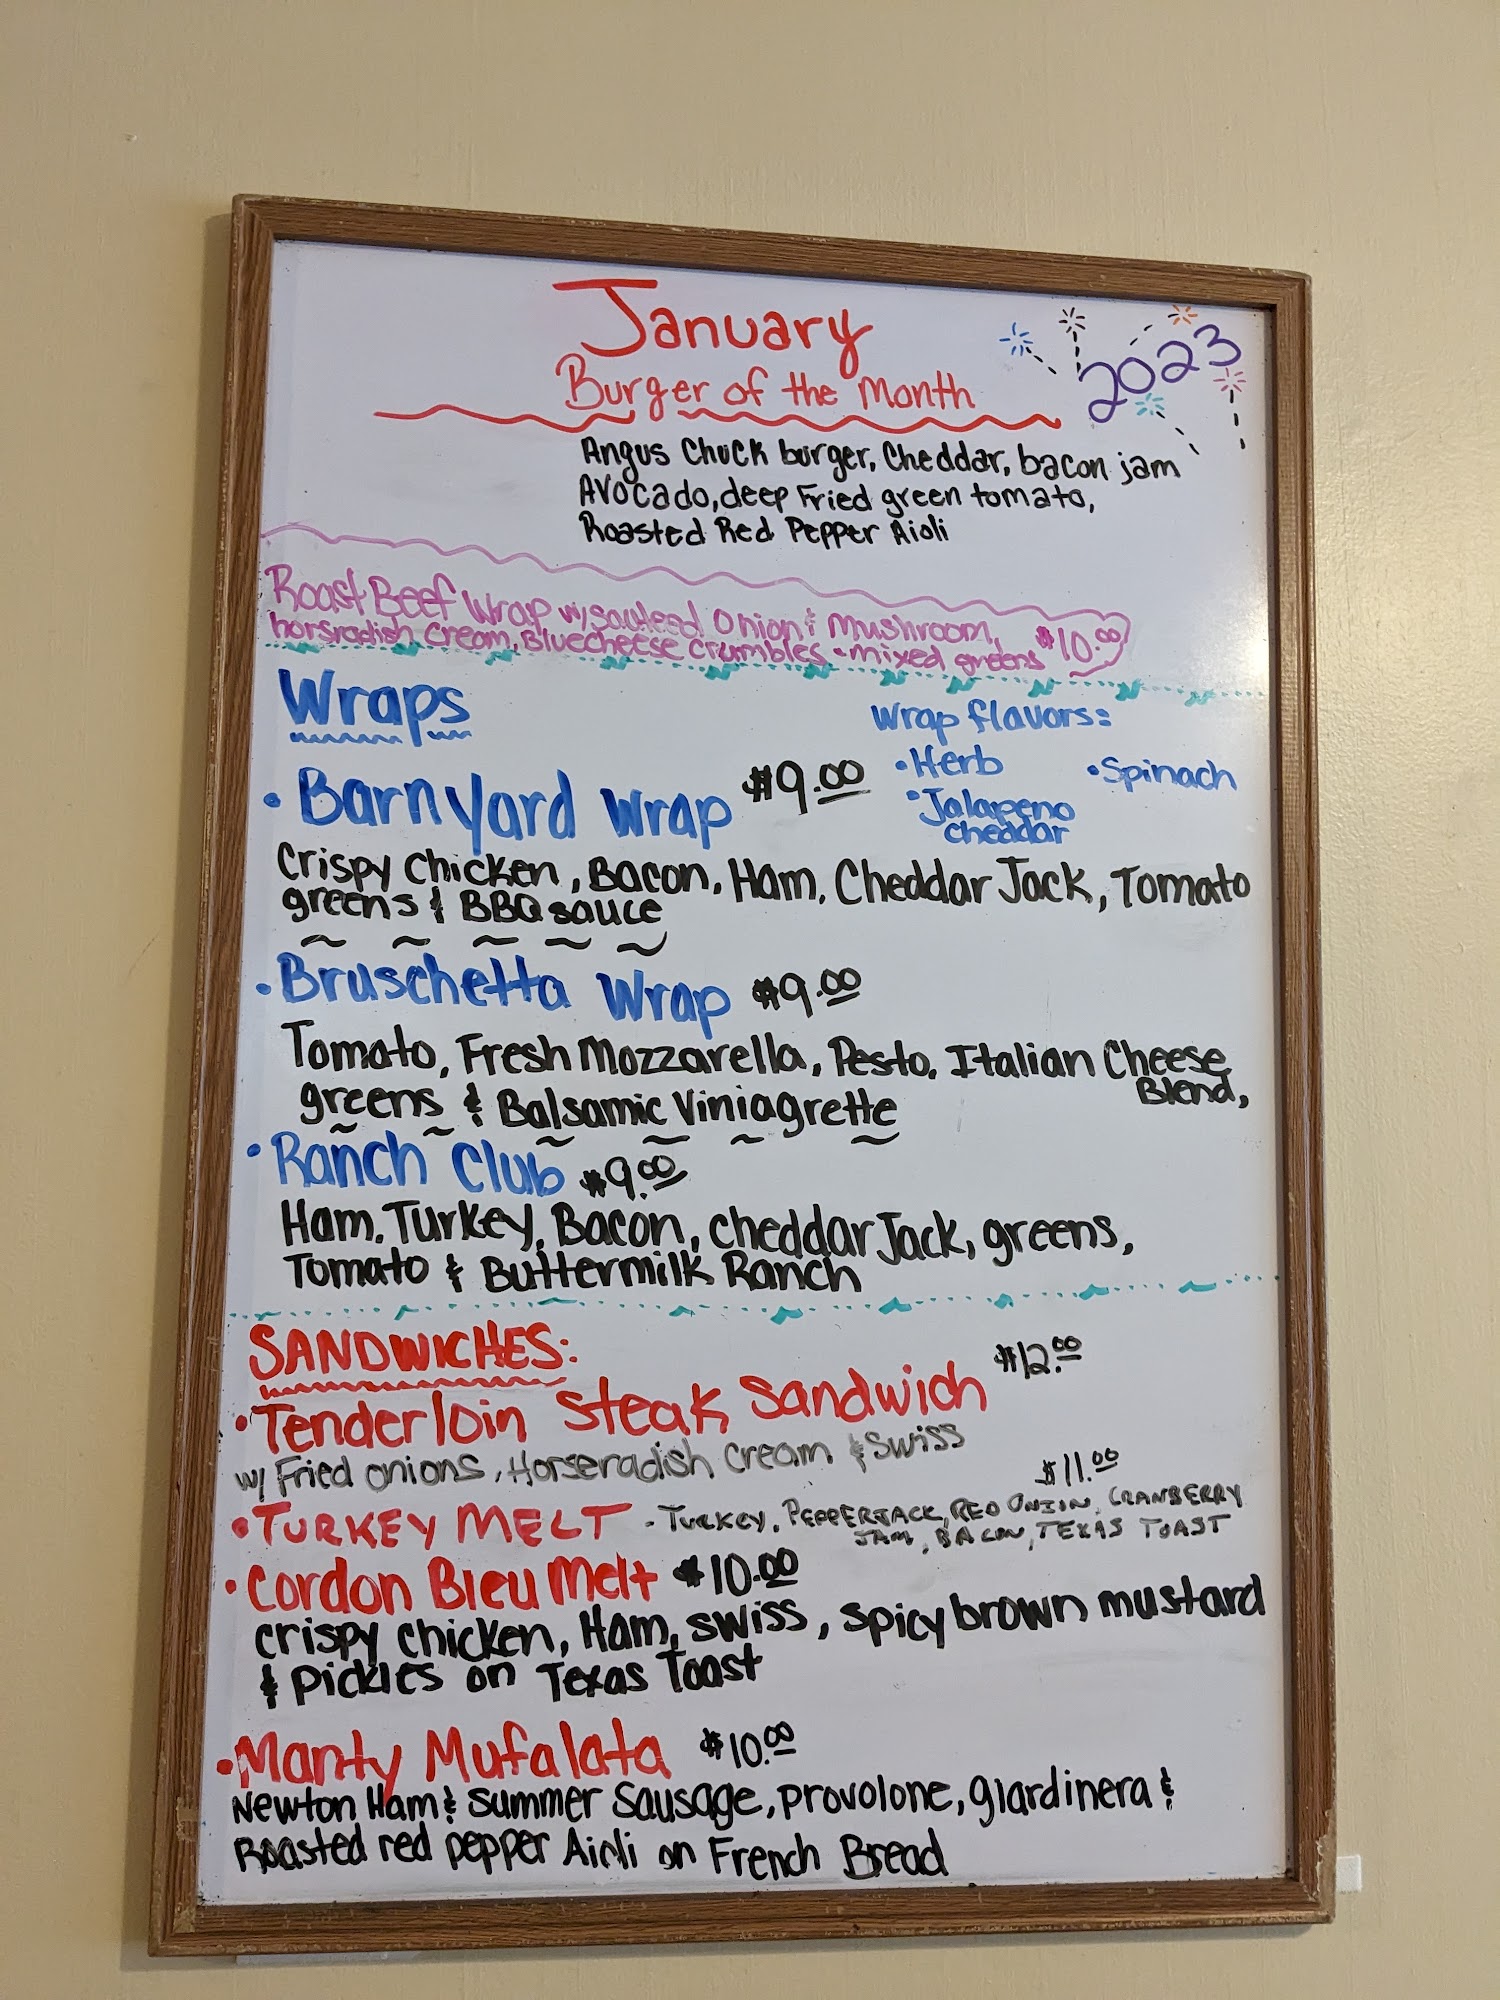 January
2023
Burger of the Month
Angus Chuck burger, Cheddar, bacon jam
Avocado, deep Fried green tomato,
Roasted Red Pepper Aioli
Roast Beef Wrap w/sauteed Onion & Mushroom,
horsradish cream, Bluecheese crumbles - mixed greens $10.00
Wraps
Wrap flavors:
• Herb • Spinach
• Jalapeno
cheddar
• Barnyard Wrap $9.00
Crispy Chicken, Bacon, Ham, Cheddar Jack, Tomato
greens & BBQ sauce
• Bruschetta Wrap $9.00
Tomato, Fresh Mozzarella, Pesto, Italian Cheese
Blend,
greens & Balsamic Viniagrette
• Ranch Club $9.00
Ham, Turkey, Bacon, cheddar Jack, greens,
Tomato & Buttermilk Ranch
SANDWICHES:
• Tenderloin Steak Sandwich $12.00
w/ Fried onions, Horseradish cream & Swiss
$11.00
• TURKEY MELT - TURKEY, PEPPERJACK, RED ONION, CRANBERRY
JAM, BACON, TEXAS TOAST
• Cordon Bleu Melt $10.00
crispy chicken, Ham, swiss, spicy brown mustard
& Pickles on Texas Toast
• Manty Mufalata $10.00
Newton Ham & Summer Sausage, provolone, giardinera &
Roasted red pepper Aioli on French Bread